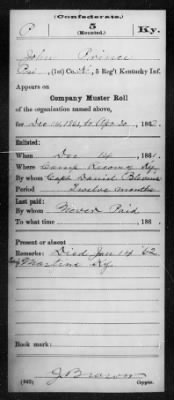 (Confederate.)
P 5 Ky.
(Mounted.)
John Prince
Pvt, (1st) Co. , 5 Reg't Kentucky Inf.
Appears on
Company Muster Roll
of the organization named above,
for Dec 14, 1861, to Apr 30, 1862.
Enlisted:
When Dec 14, 1861.
Where Camp Ky
By whom Capt Daniel Blevins
Period Twelve months
Last paid:
By whom Never Paid
To what time , 186 .
Present or absent
Remarks: Died Jan 14 '62
Martins Ky.
Book mark:
(642) J Brown
Copyist.